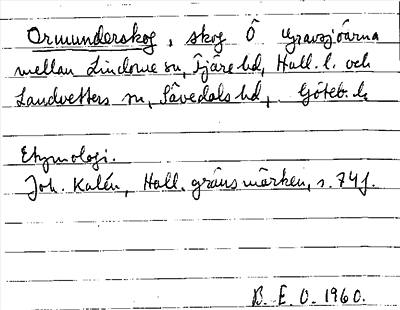 Ormunderskog, skog Ö Gravsjöarna
mellan Lindome sn, Fjäre hd, Hall. l. och
Landvetters sn, Sävedals hd, Göteb. l.
Etymologi.
Joh. Kalén, Hall. gränsmärken, s. 74 f.
B. E. O. 1960.